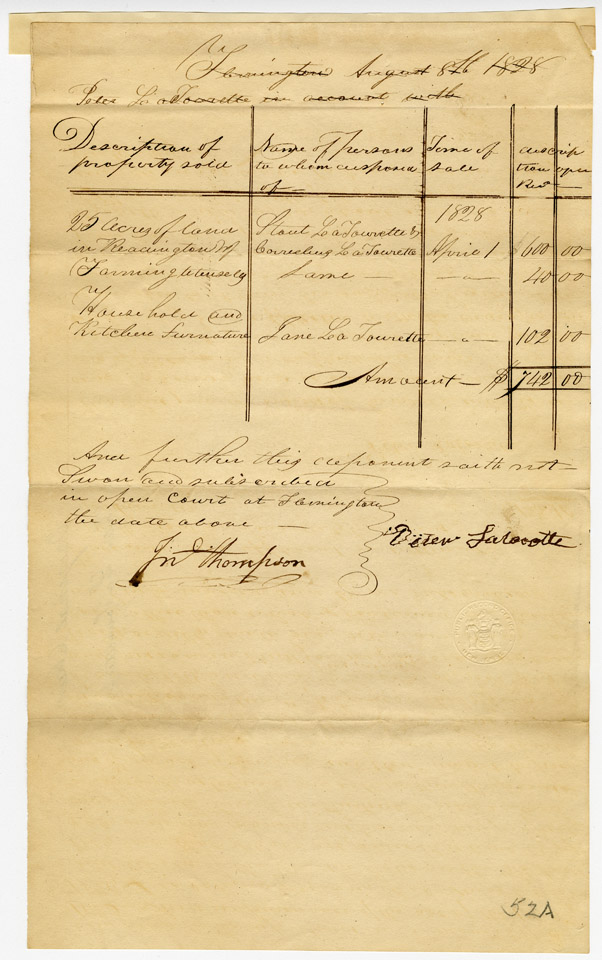 Flemington August 8th 1828
Peter La Tourette in account with
Description of property sold | Name of persons to whom disposed of — | Time of sale | descrip tion
1828
25 acres of land | Stout La Tourette &
in Readington | Cornelius La Tourette | April 1 | $600 00
Farming utensels | Same — | — " — | 40 00
Household and
Kitchen Furnature | Jane La Tourette | — " — | 102 00
Amount — $ 742 00
And further this deponent saith not —
Swon and subscribed
in open Court at Flemington
the date above —
Jno Thompson
Peter Latorette
52A